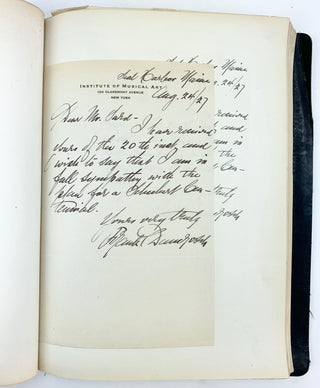 Seal Harbor Maine
INSTITUTE OF MUSICAL ART
120 CLAREMONT AVENUE
NEW YORK
Aug. 24/27
Dear Mr. Sard -
I have received
yours of the 20th inst, and
wish to say that I am in
full sympathy with the
plan for a Schubert Cen-
tennial.
Yours very truly
Frank Damrosch
Maine
24/27
received
and
am in
the
Cen-
truly
rosch